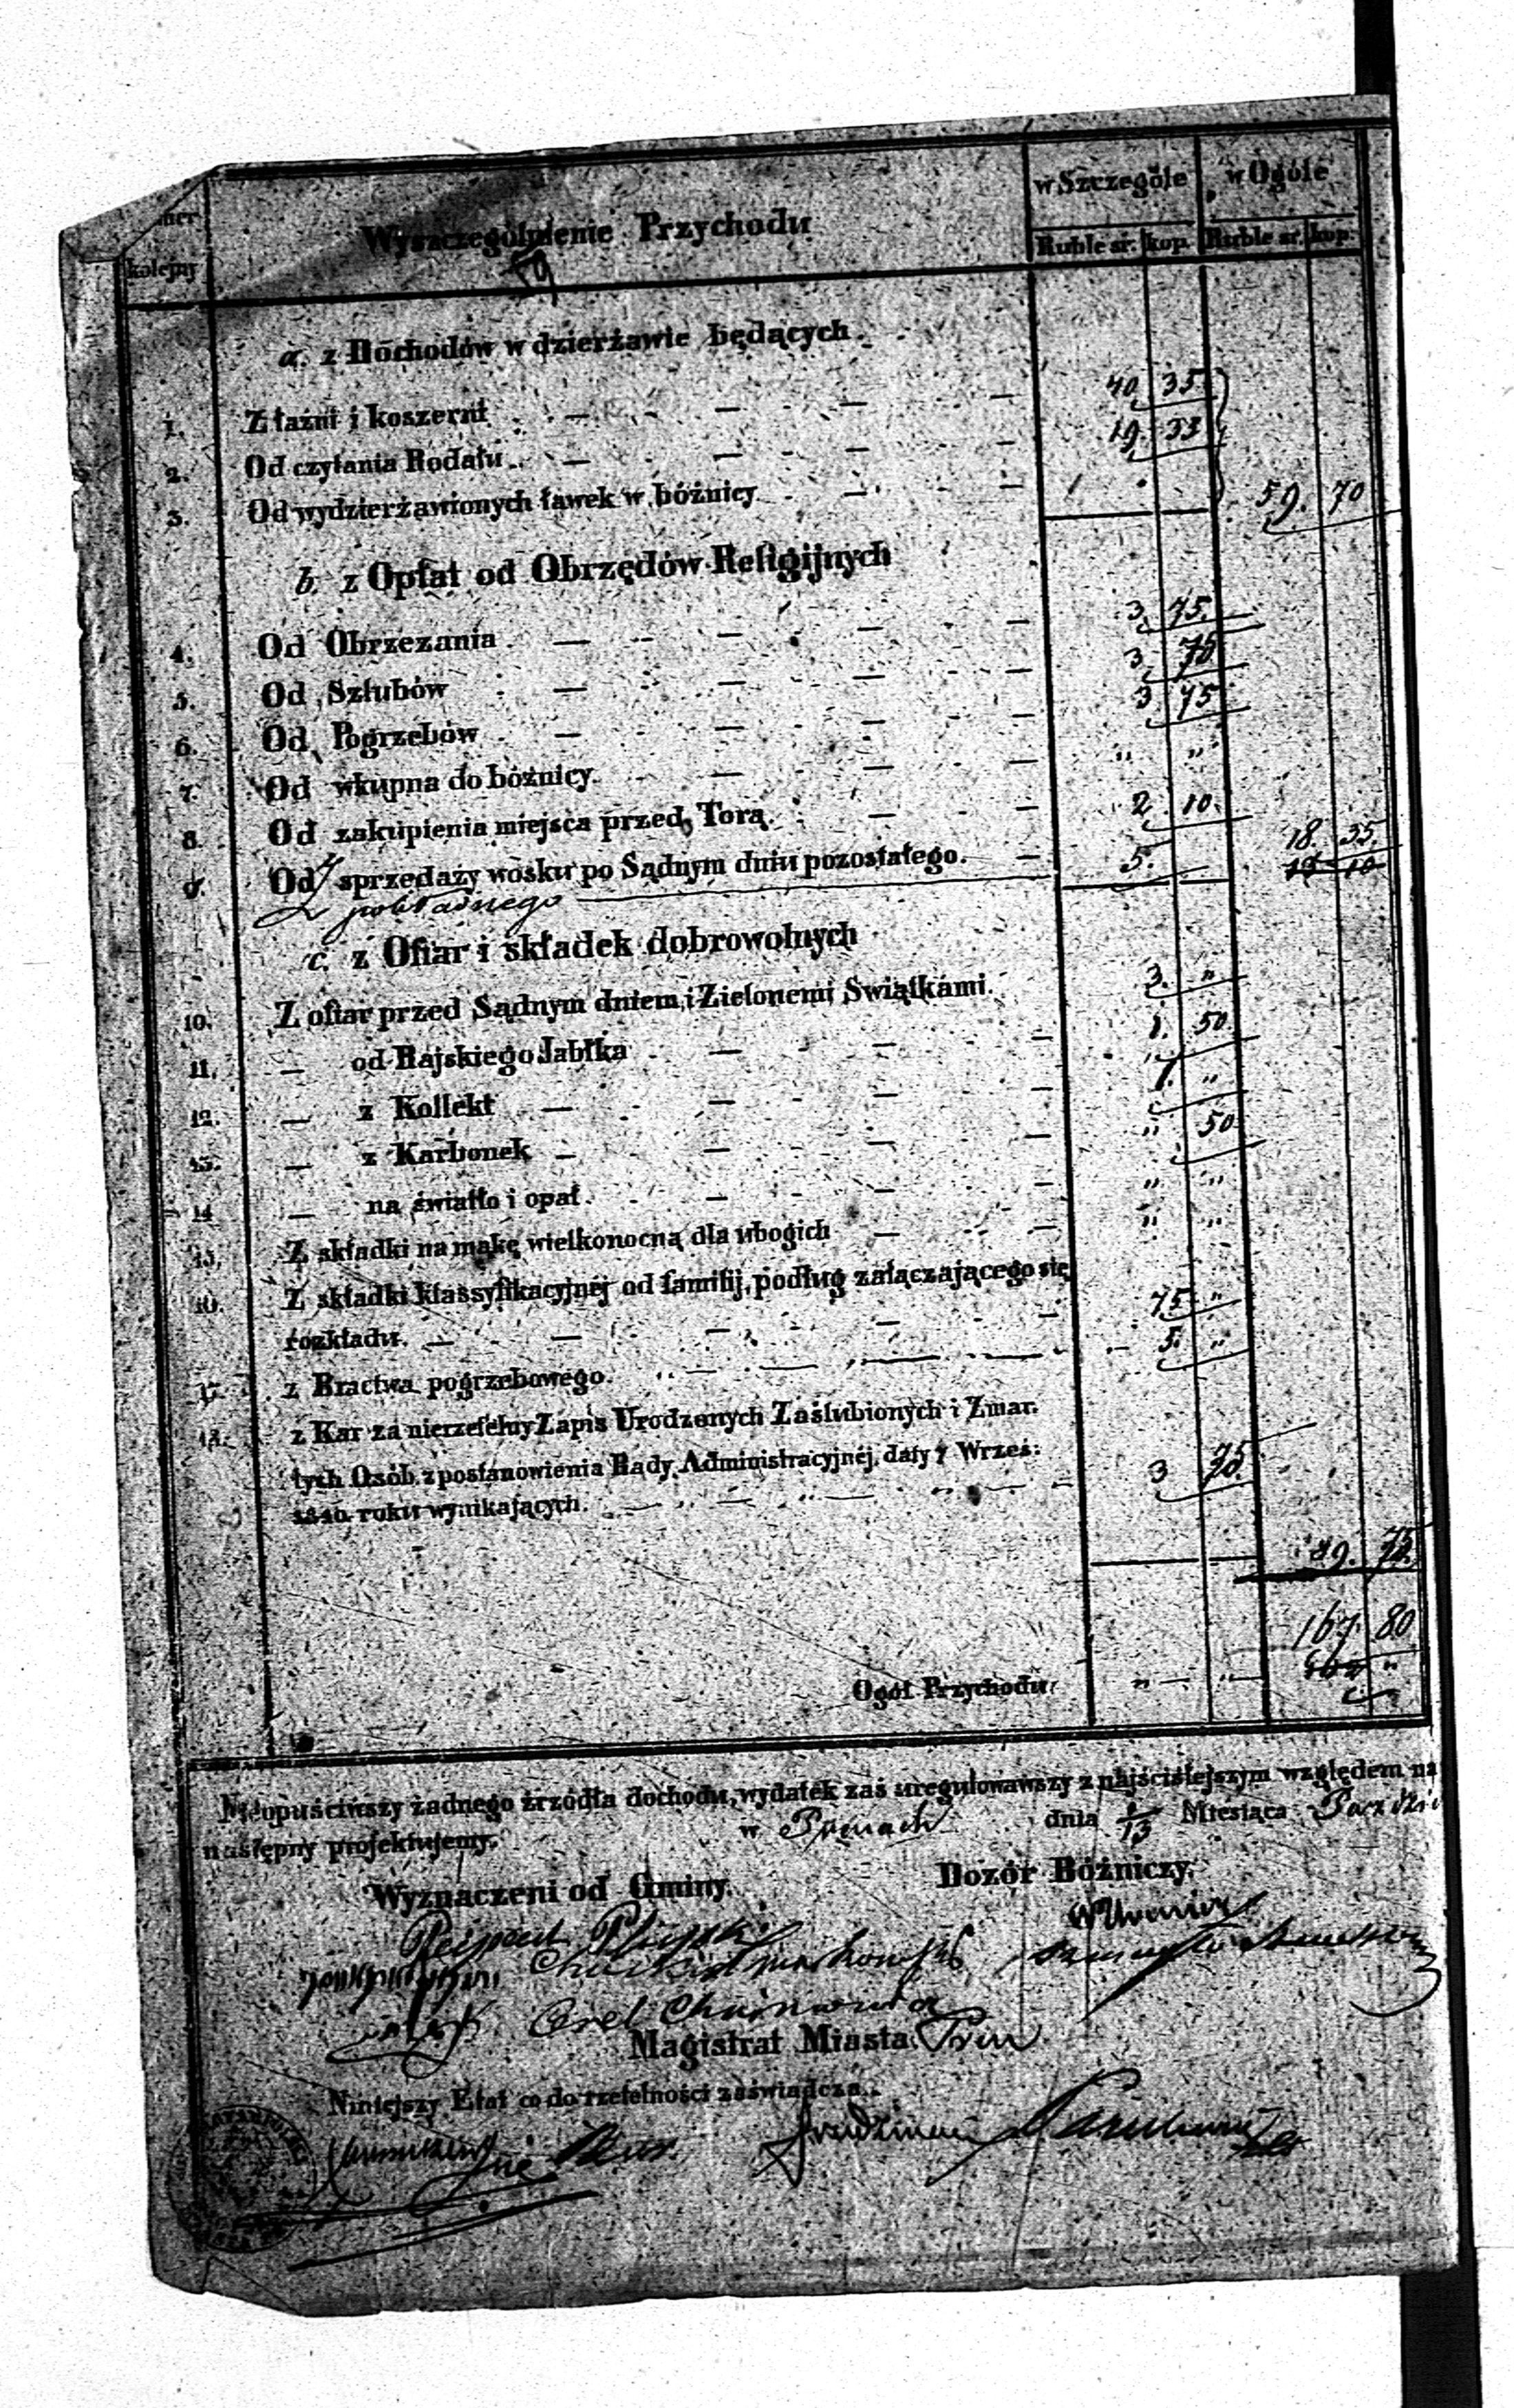 kolejny Wyszczególnienie Przychodu w Szczególe w Ogóle
Ruble sr. kop. Ruble sr. kop.
a. z Dochodów w dzierżawie będących.
1. Z łaźni i koszerni 40. 35
2. Od czytania Rodału 19. 33
3. Od wydzierżawionych ławek w bóźnicy 59. 70
b. z Opłat od Obrzędów Religijnych
4. Od Obrzezania 3. 75.
5. Od Szlubów 3. 75
6. Od Pogrzebów 3 75
7. Od wkupna do bóźnicy. „ „
8. Od zakupienia miejsca przed Torą. 2. 10. 18. 35.
9. Od sprzedaży wosku po Sądnym dniu pozostałego. 5.
c. z Ofiar i składek dobrowolnych
10. Z ofiar przed Sądnym dniem i Zielonemi Swiątkami. 3. „
11. — od Rajskiego Jabłka 1. 50.
12. — z Kollekt 1. „
13. — z Karbonek „ 50.
14. — na światło i opał. „ „
15. Z składki na mąkę wielkonocną dla ubogich „ „
16. Z składki klassyfikacyjnéj od familij, podług załączającego się
rozkładu. 75 „
17. z Bractwa pogrzebowego. 5. „
18. z Kar za nierzetelny Zapis Urodzonych Zaślubionych i Zmar.
łych Osób z postanowienia Rady Administracyjnéj daty 7 Wrześ:
roku wynikających. 3 75.
89. 75.
167. 80
Ogół Przychodu. „ „
Nieopuściwszy żadnego źrzódła dochodu, wydatek zaś uregulowawszy z najściślejszym względem na
następny projektujemy. w Prenach dnia 1/13 Miesiąca Paździ
Wyznaczeni od Gminy. Dozór Bóźniczy.
Magistrat Miasta Pren
Niniejszy Etat co do rzetelności zaświadcza.